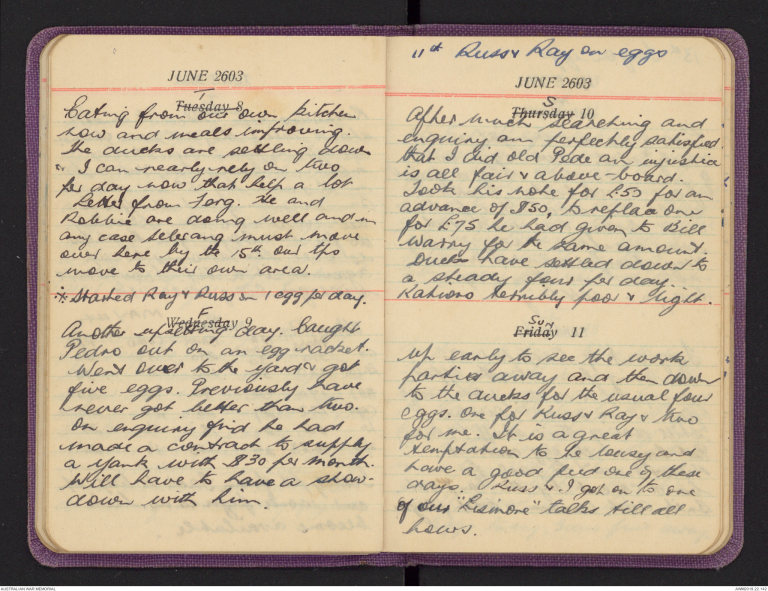 JUNE 2603
T
Tuesday 8
Eating from our own kitchen
now and meals improving.
The ducks are settling down
& I can nearly rely on two
per day now that help a lot
Letter from Farg. He and
Robbie are doing well and in
any case Selerang must move
over here by the 15th. our tps
move to their own area.
Started Ray & Russ on 1 egg per day.
F
Wednesday 9
Another upsetting day. Caught
Pedro out on an egg racket.
Went over to the yard & got
five eggs. Previously have
never got better than two.
On enquiry find he had
made a contract to supply
a Yank with $30 per month.
Will have to have a show-
down with him.
11th Russ & Ray on eggs
JUNE 2603
S
Thursday 10
After much searching and
enquiry am perfectly satisfied
that I did old Pede an injustice
is all fair & above-board.
Took his note for £50 for an
advance of $50, to replace one
for £75 he had given to Bill
Warry for the same amount.
Ducks have settled down to
a steady four per day.
Rations terribly poor & light.
Sun
Friday 11
Up early to see the work
parties away and then down
to the ducks for the usual four
eggs. One for Russ & Ray & two
for me. It is a great
temptation to be lousy and
have a good feed one of these
days. Russ & I got on to one
of our "Lismore" talks till all
hours.
AUSTRALIAN WAR MEMORIAL